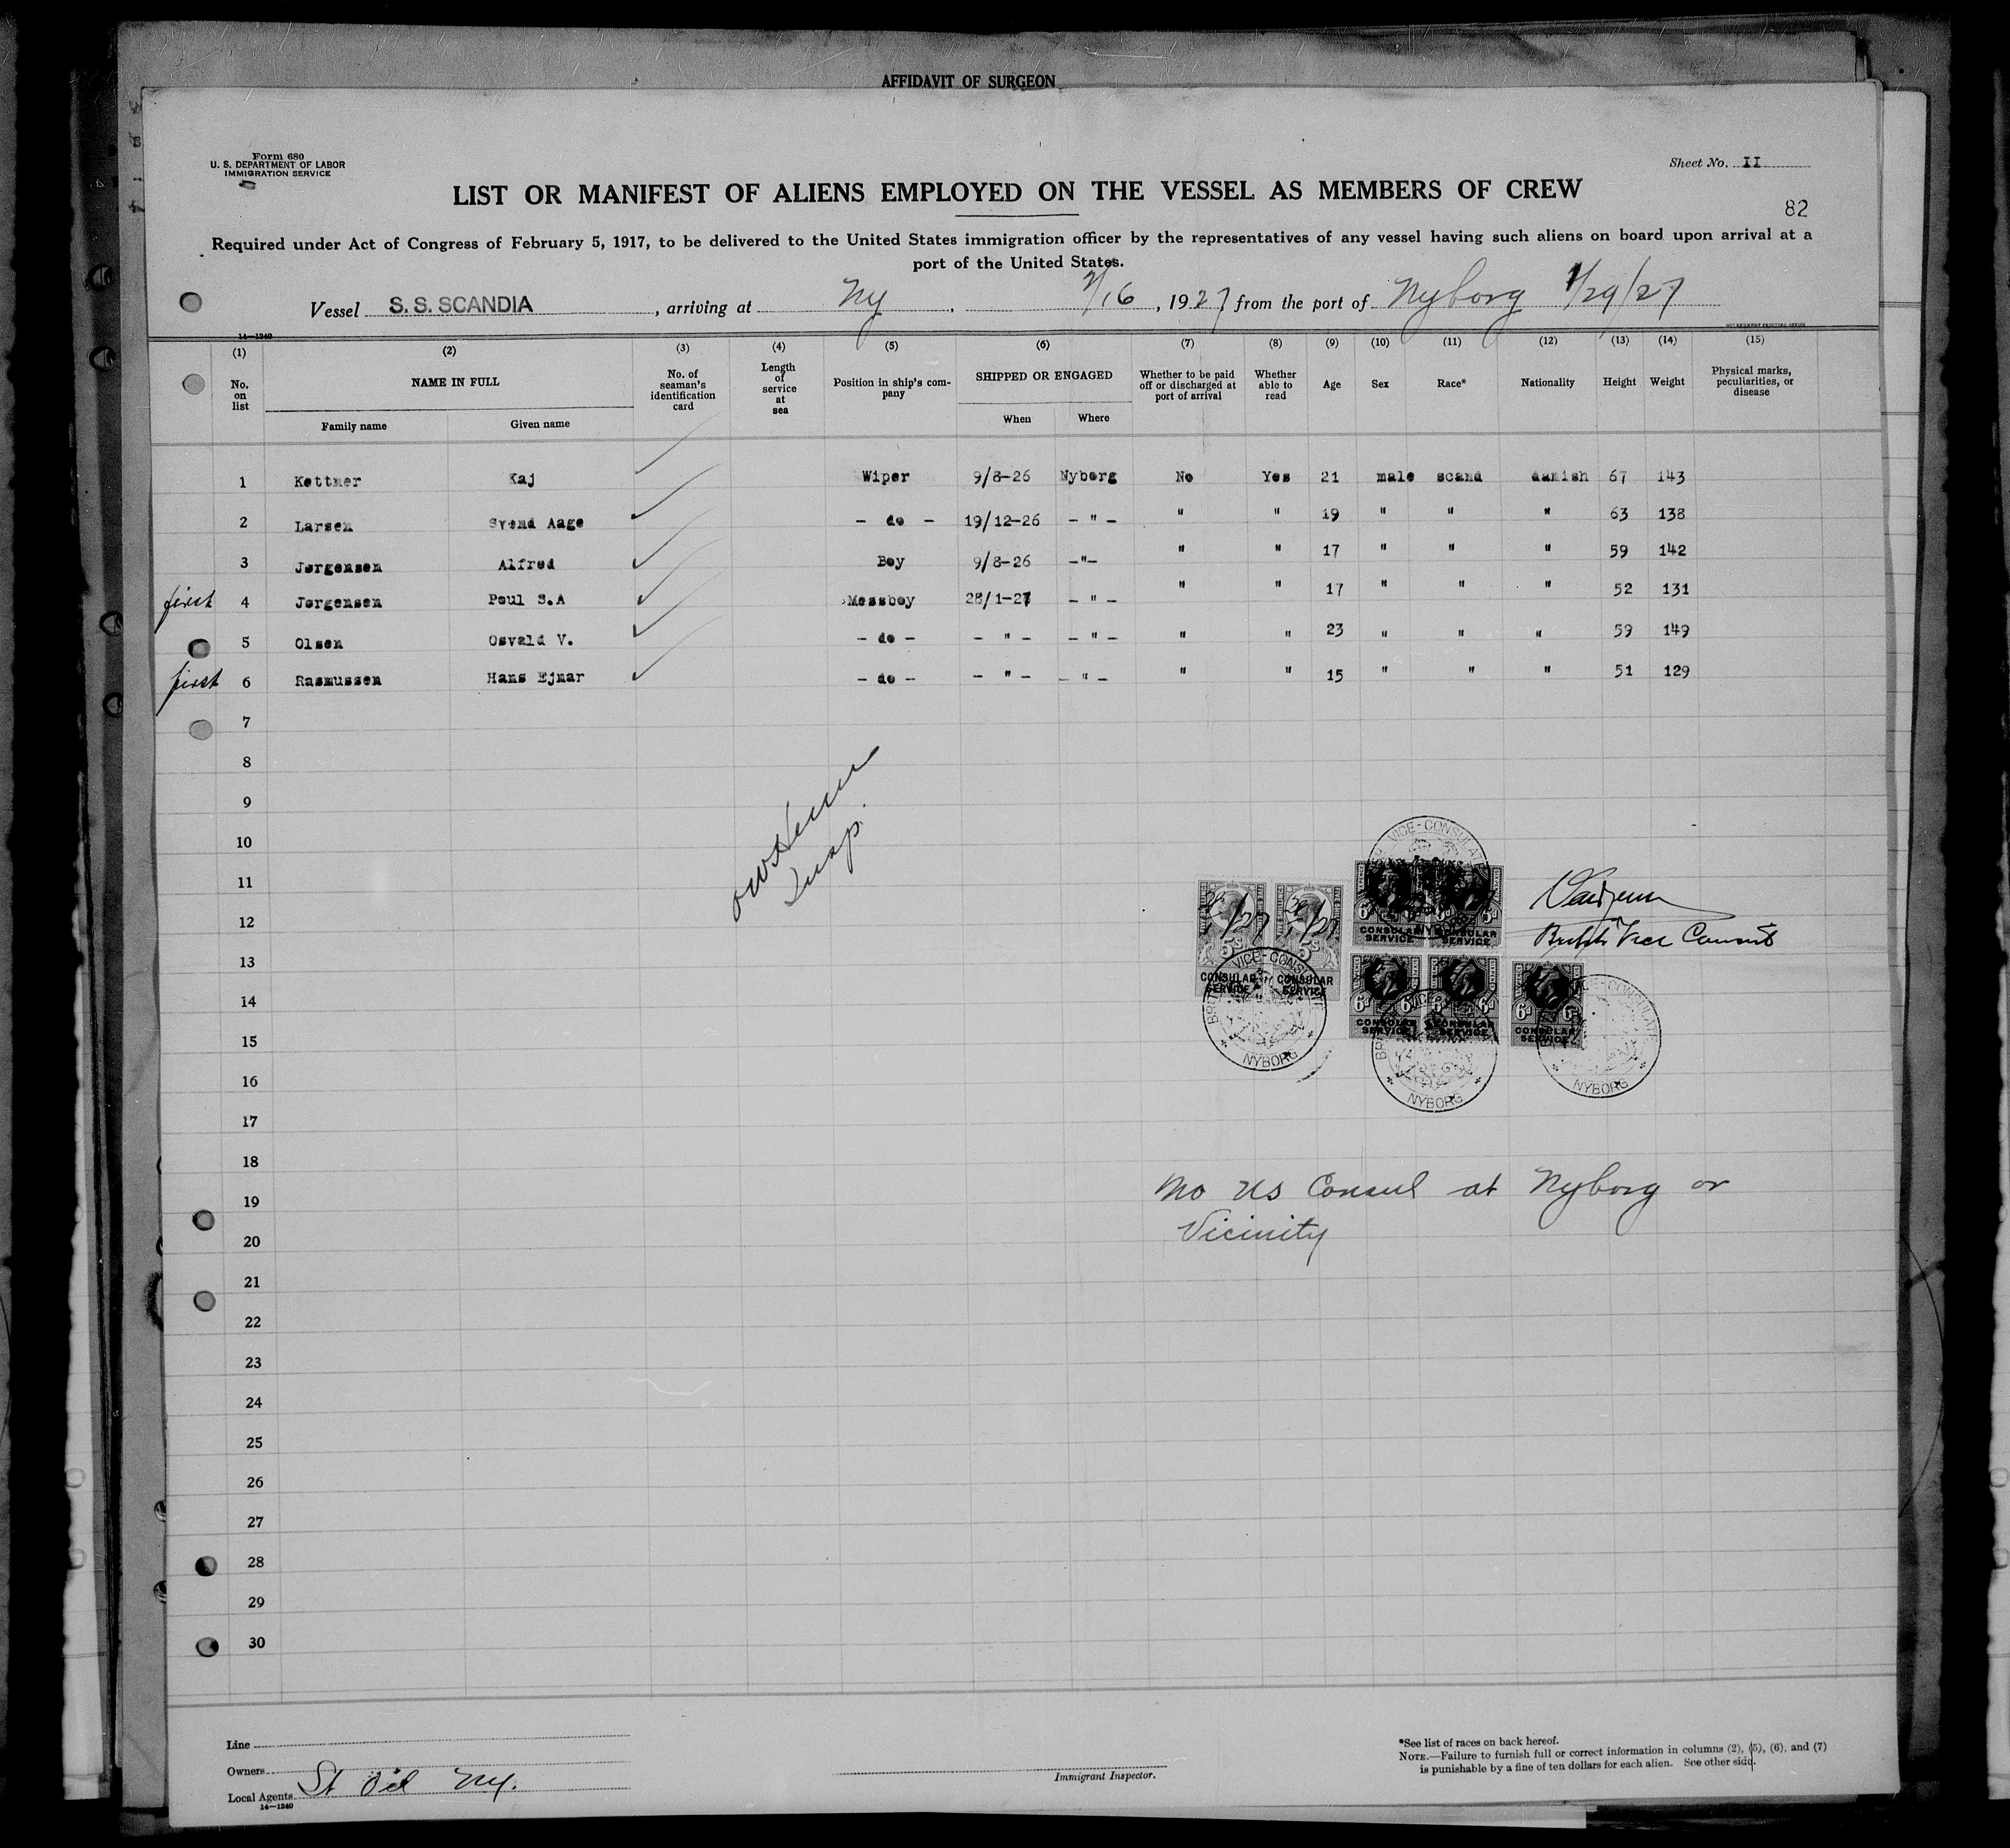 AFFIDAVIT OF SURGEON
Form 680
U. S. DEPARTMENT OF LABOR
IMMIGRATION SERVICE
Sheet No. II
LIST OR MANIFEST OF ALIENS EMPLOYED ON THE VESSEL AS MEMBERS OF CREW
82
Required under Act of Congress of February 5, 1917, to be delivered to the United States immigration officer by the representatives of any vessel having such aliens on board upon arrival at a
port of the United States.
Vessel S. S. SCANDIA, arriving at Ny, 2/16, 1927, from the port of Nyborg 1/29/27
14—1240
GOVERNMENT PRINTING OFFICE
(1) (2) (3) (4) (5) (6) (7) (8) (9) (10) (11) (12) (13) (14) (15)
No. on list
NAME IN FULL
Family name
Given name
No. of seaman's identification card
Length of service at sea
Position in ship's company
SHIPPED OR ENGAGED
When
Where
Whether to be paid off or discharged at port of arrival
Whether able to read
Age
Sex
Race*
Nationality
Height
Weight
Physical marks, peculiarities, or disease
1 Kettner Kaj Wiper 9/8-26 Nyborg No Yes 21 male scand danish 67 143
2 Larsen Svend Aage - do - 19/12-26 - " - " " 19 " " " 63 138
3 Jørgensen Alfred Boy 9/8-26 -"- " " 17 " " " 59 142
first 4 Jørgensen Poul S.A Messboy 28/1-27 - " - " " 17 " " " 52 131
5 Olsen Osvald V. - do - - " - - " - " " 23 " " " 59 149
first 6 Rasmussen Hans Ejnar - do - - " - - " - " " 15 " " " 51 129
7
8
9
10
11
12
13
14
15
16
17
18
19
20
21
22
23
24
25
26
27
28
29
30
Insp.
VICE-CONSULATE
NYBORG
5s
5s
CONSULAR SERVICE
CONSULAR SERVICE
6d
CONSULAR SERVICE
CONSULAR SERVICE
British Vice Consul
VICE-CONSULATE
NYBORG
6d 6d
CONSULAR SERVICE
CONSULAR SERVICE
NYBORG
6d 6d
CONSULAR SERVICE
VICE-CONSULATE
NYBORG
No US Consul at Nyborg or
Vicinity
Line
Owners
Local Agents St Oil NY.
14—1240
Immigrant Inspector.
*See list of races on back hereof.
NOTE.—Failure to furnish full or correct information in columns (2), (5), (6), and (7)
is punishable by a fine of ten dollars for each alien. See other side.